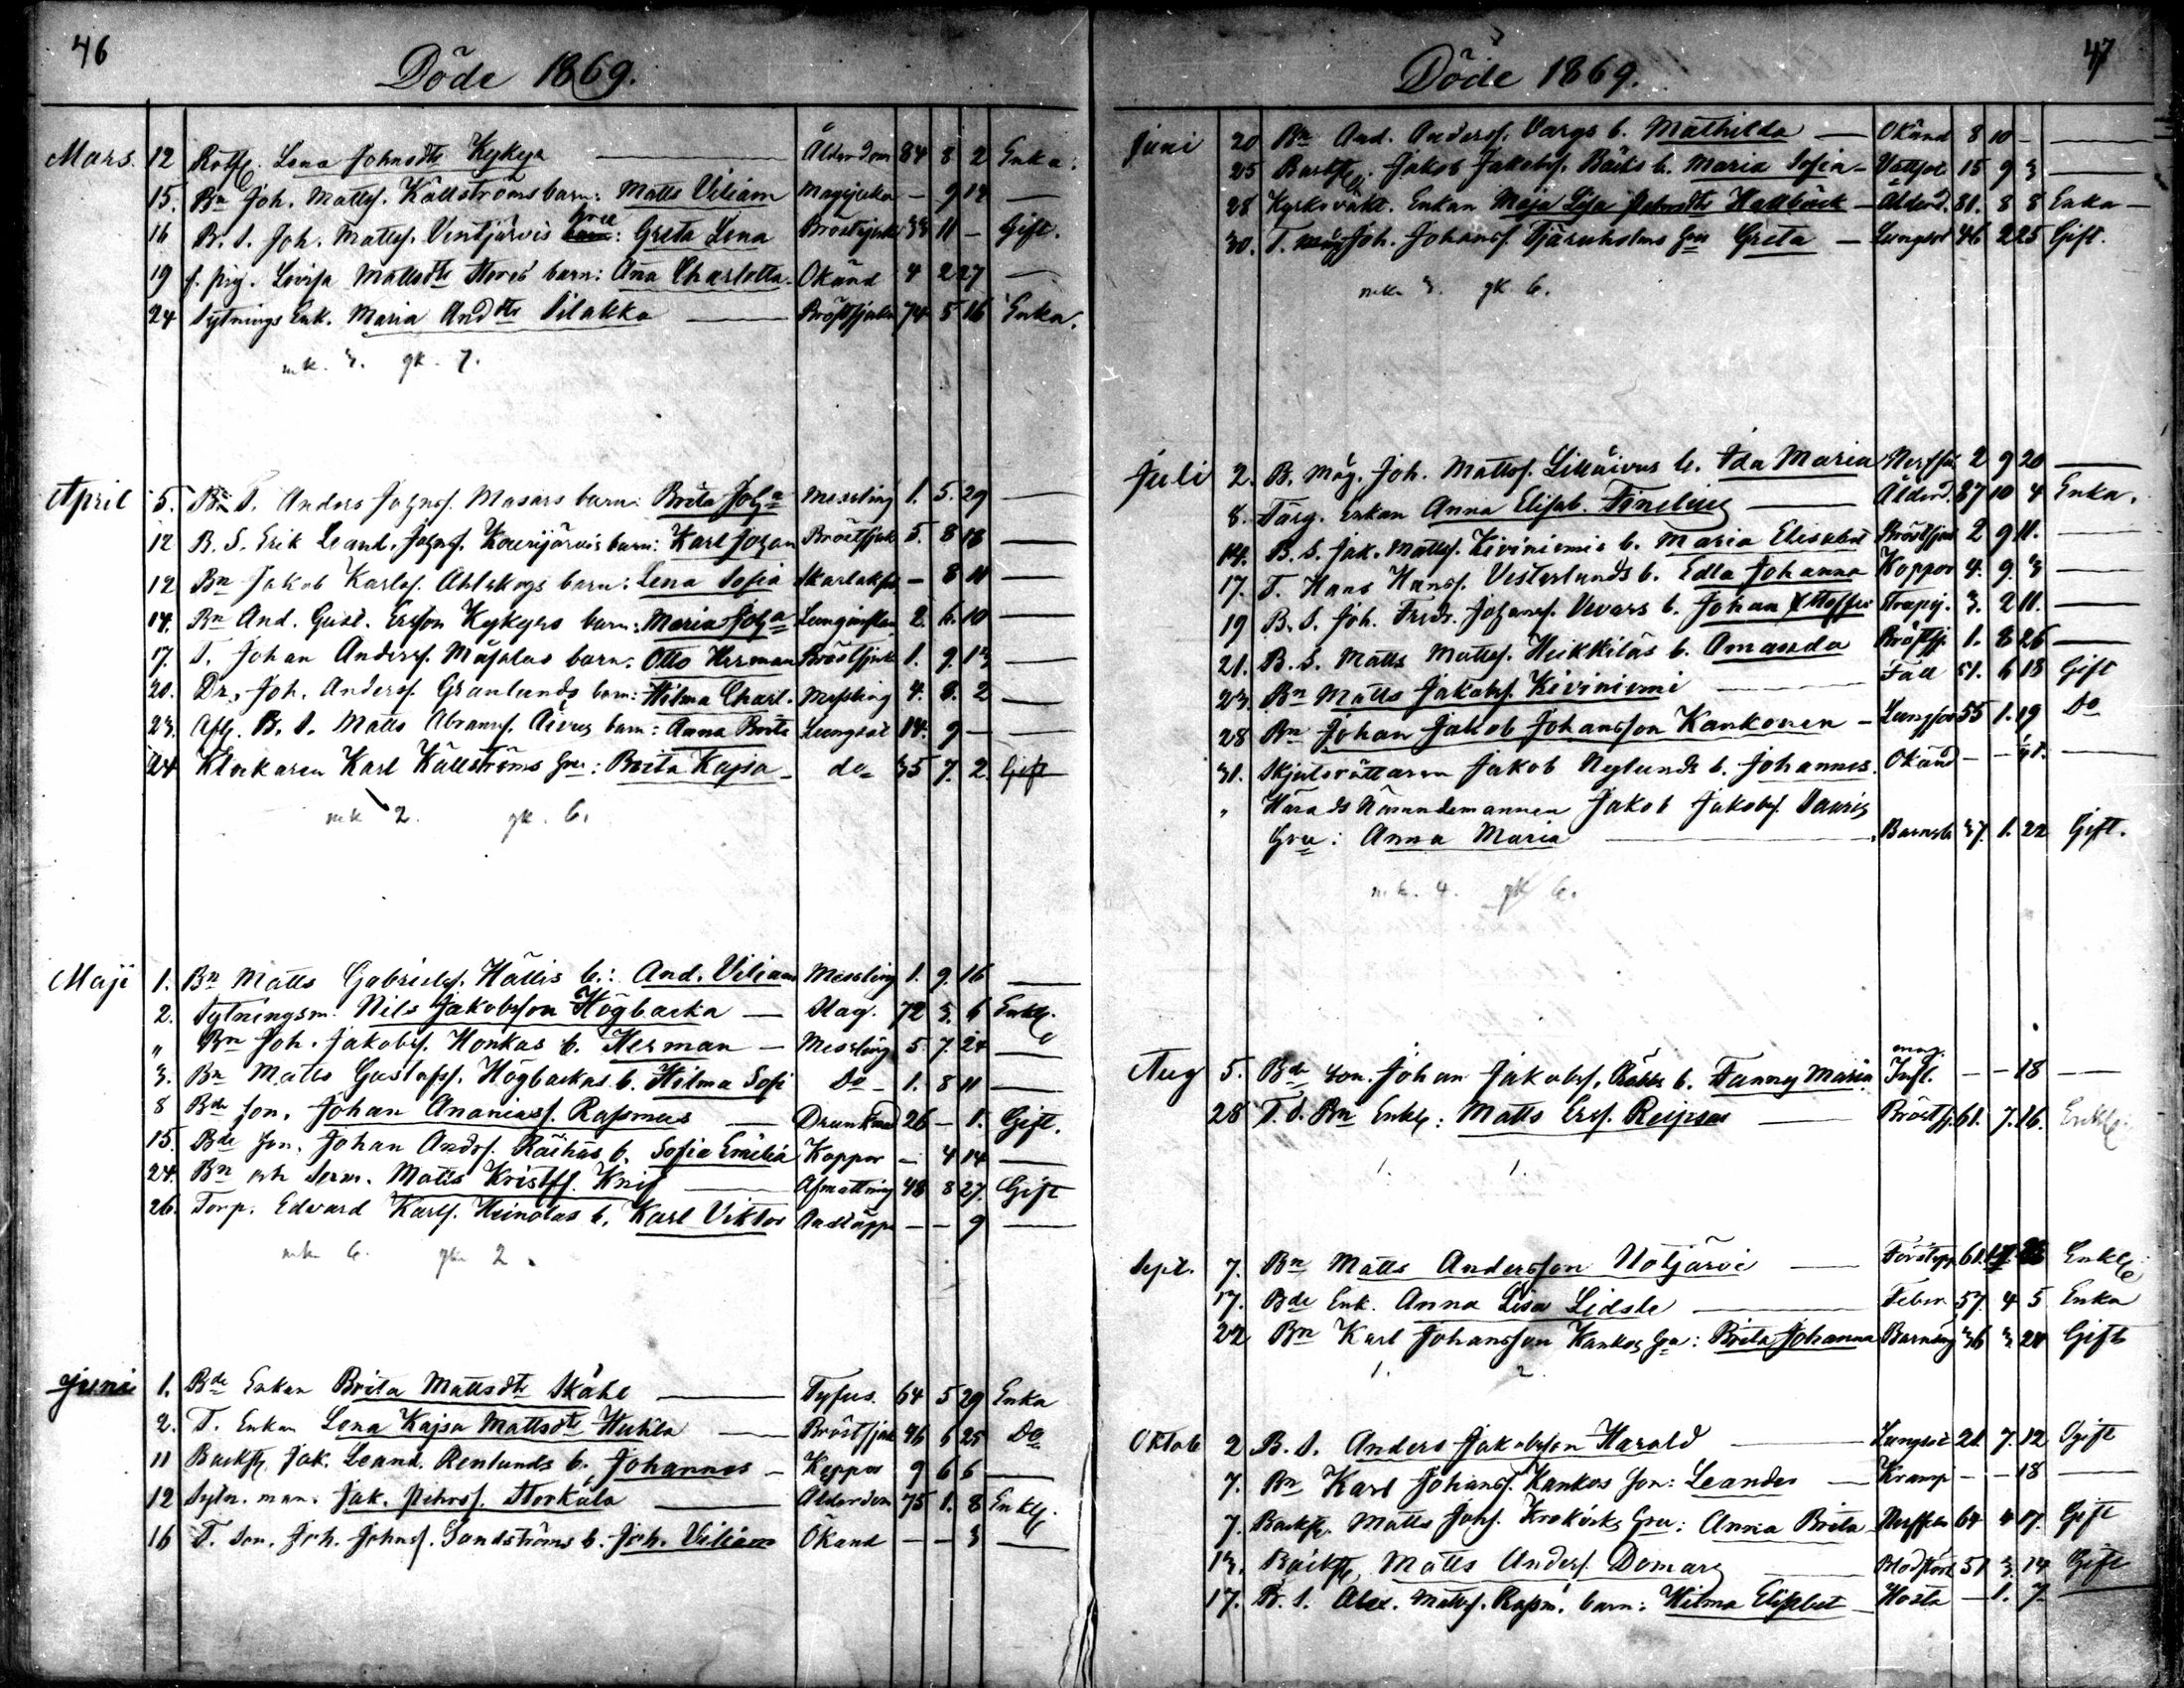 46
Döde 1869.
Mars. 12 Lena Johnsdtr Kykyr Ålderdom 84 8 2 Enka.
15. Bn Joh. Mattss. Källströms barn: Matts Viliam Magsjuka — 9 12 —
16 B. S. Joh. Mattss. Ventjärvis hru: Greta Lena Bröstsjuk 33 11 — Gift.
19 f. pig. Lovisa Mattsdtr Stores barn: Ana Charlotta Okänd 4 2 27 —
24 Sytnings Enk. Maria Anddtr Pilakka Bröstsjuka 74 5 16 Enka.
mk. 3. qk. 7.
April 5. Bn S. Anders Johnss. Masars barn: Brita Joha Messling 1. 5. 29 —
12 B. S. Erik Leand. Johnss. Kourijärvis barn: Karl Johan Bröstsjuk 5. 8 18 —
12 Bn Jakob Karlss. Ahlskogs barn: Lena Sofia Skarlaksf — 8 11 —
14. Bn And. Gust. Ersson Kykyrs barn: Maria Joha Lunginflam 2. 6. 10 —
17. T. Johan Anderss. Mäsalas barn: Otto Herman Bröstsjuk 1. 9. 13 —
20. Dr. Joh. Anderss. Granlunds barn: Hilma Charl. Messling 4. 8. 2 —
23. Afl. B. S. Matts Abramss. barn: Anna Brita Lungsot 14. 9 — —
24 Klockaren Karl Källströms hru: Brita Kajsa do 35 7. 2. Gift
mk 2. qk. 6.
Maji 1. Bn Matts Gabrielss. Hällis b.: And. Viliam Messling 1. 9. 16 —
2. Sytningsm. Nils Jakobsson Högbacka — Slag. 72 3. 6 Enkl.
„ Bn Joh. Jakobss. Honkas b. Herman — Messling 5 7. 24 —
3. Bn Matts Gustafss. Högbackas b. Hilma Sofi Do 1. 8 11 —
8 Bde son. Johan Ananiass. Rasmus — Drunknad 26 — 1. Gift.
15. Bde Son. Johan Andss. Räihäs b. Sofia Emilia Koppor — 4 14 —
24. Bn och Matts Kristfs. Knif — Afmattning 48 8 27. Gift
26. Torp. Edvard Karls. Heinolas b. Karl Viktor Andtäppa — — 9 —
mk 6. qk 2.
Juni 1. Bde Enkan Brita Mattsdtr Skåhl — Tyfus. 64 5 29 Enka
2. T. Enkan Lena Kajsa Mattsdtr Huhta — Bröstsjuk 46 6 25 Do
11 Backst. Jak. Leand. Renlunds b. Johannes — Koppor 9 6 6 —
12 Sytn. man. Jak. Pehrss. Storkula — Ålderdom 75 1. 8 Enkl.
16 T. Son. Joh. Johnss. Sandströms b. Joh. Viliam Okänd — — 3 —
47
Döde 1869.
Juni 20 Bn And. Anderss. Vargs b. Mathilda — Okänd 8 10 — —
25 Backst. Jakob Jakobss. Bäcks b. Maria Sofia — Vattsot 15 9 3 —
28 Kyrkväkt. Enkan Maja Lisa Pehrsdtr Hallbäck — Ålderd. 81. 8 8 Enka —
30. T. Joh. Johanss. Tjäruholms hru Greta — Lungsot 46 2 25 Gift.
mk 3. qk. 6.
Juli 2. B. Måg. Joh. Mattss. b. Ida Maria Nerffe 2 9 20 —
8. Färg. Enkan Anna Elisab. Finelius — Ålderd. 87 10 4 Enka.
14. B. S. Jak. Mattss. Kiviniemis b. Maria Elisabet Bröstsjuk 2 9 11. —
17. T. Hans Hanss. Vesterlunds b. Edla Johanna Koppor 4. 9. 3 —
19 B. S. Joh. Fredr. Johanss. Vevars b. Johan 3. 2 11. —
21. B. S. Matts Mattss. Heikkiläs b. Amanda Bröstsj. 1. 8 26 —
23. Bn Matts Jakobss. Kiviniemi — Fall 51. 6 18 Gift
28 Bn Johan Jakob Johansson Kankonen — Lungsot 55 1. 19 Do
31. Skjutsrättaren Jakob Nylunds b. Johannes. Okänd — — —
„ Härads Nämndemannen Jakob Jakobss. Sauris
hru: Anna Maria — Barnsb 37. 1. 22 Gift.
mk. 4. qk 6.
Aug 5. Bde son. Johan Jakobss. b. Fanny Maria Infl. — — 18 —
28 T. d. Bn Enkl: Matts Erss. Reipsar — Bröstsj. 61. 7. 16. Enkl.
1. 1.
Sept. 7. Bn Matts Andersson Notjärvi — Förstopp 61. Enkl.
17. Bde Enk. Anna Lisa Lidsle — Feber 57 4 5 Enka
22 Bn Karl Johansson Kankos hru: Brita Johanna Barnsäng 36 3 28 Gift
1. 2.
Oktob 2 B. S. Anders Jakobsson Harald — Lungsot 21. 7. 12 Gift
7. Bn Karl Johanss. Kankos son: Leander — Kramp — — 18 —
7. Backst. Matts Johs. hru: Anna Brita 64 4 17. Gift
13. Backst. Matts Anderss. Domars — Blodstört 51 3. 14 Gift
17. B. S. Alex. Mattss. Rasm. barn: Hilma Elisabet — Hosta — 1. 7. —